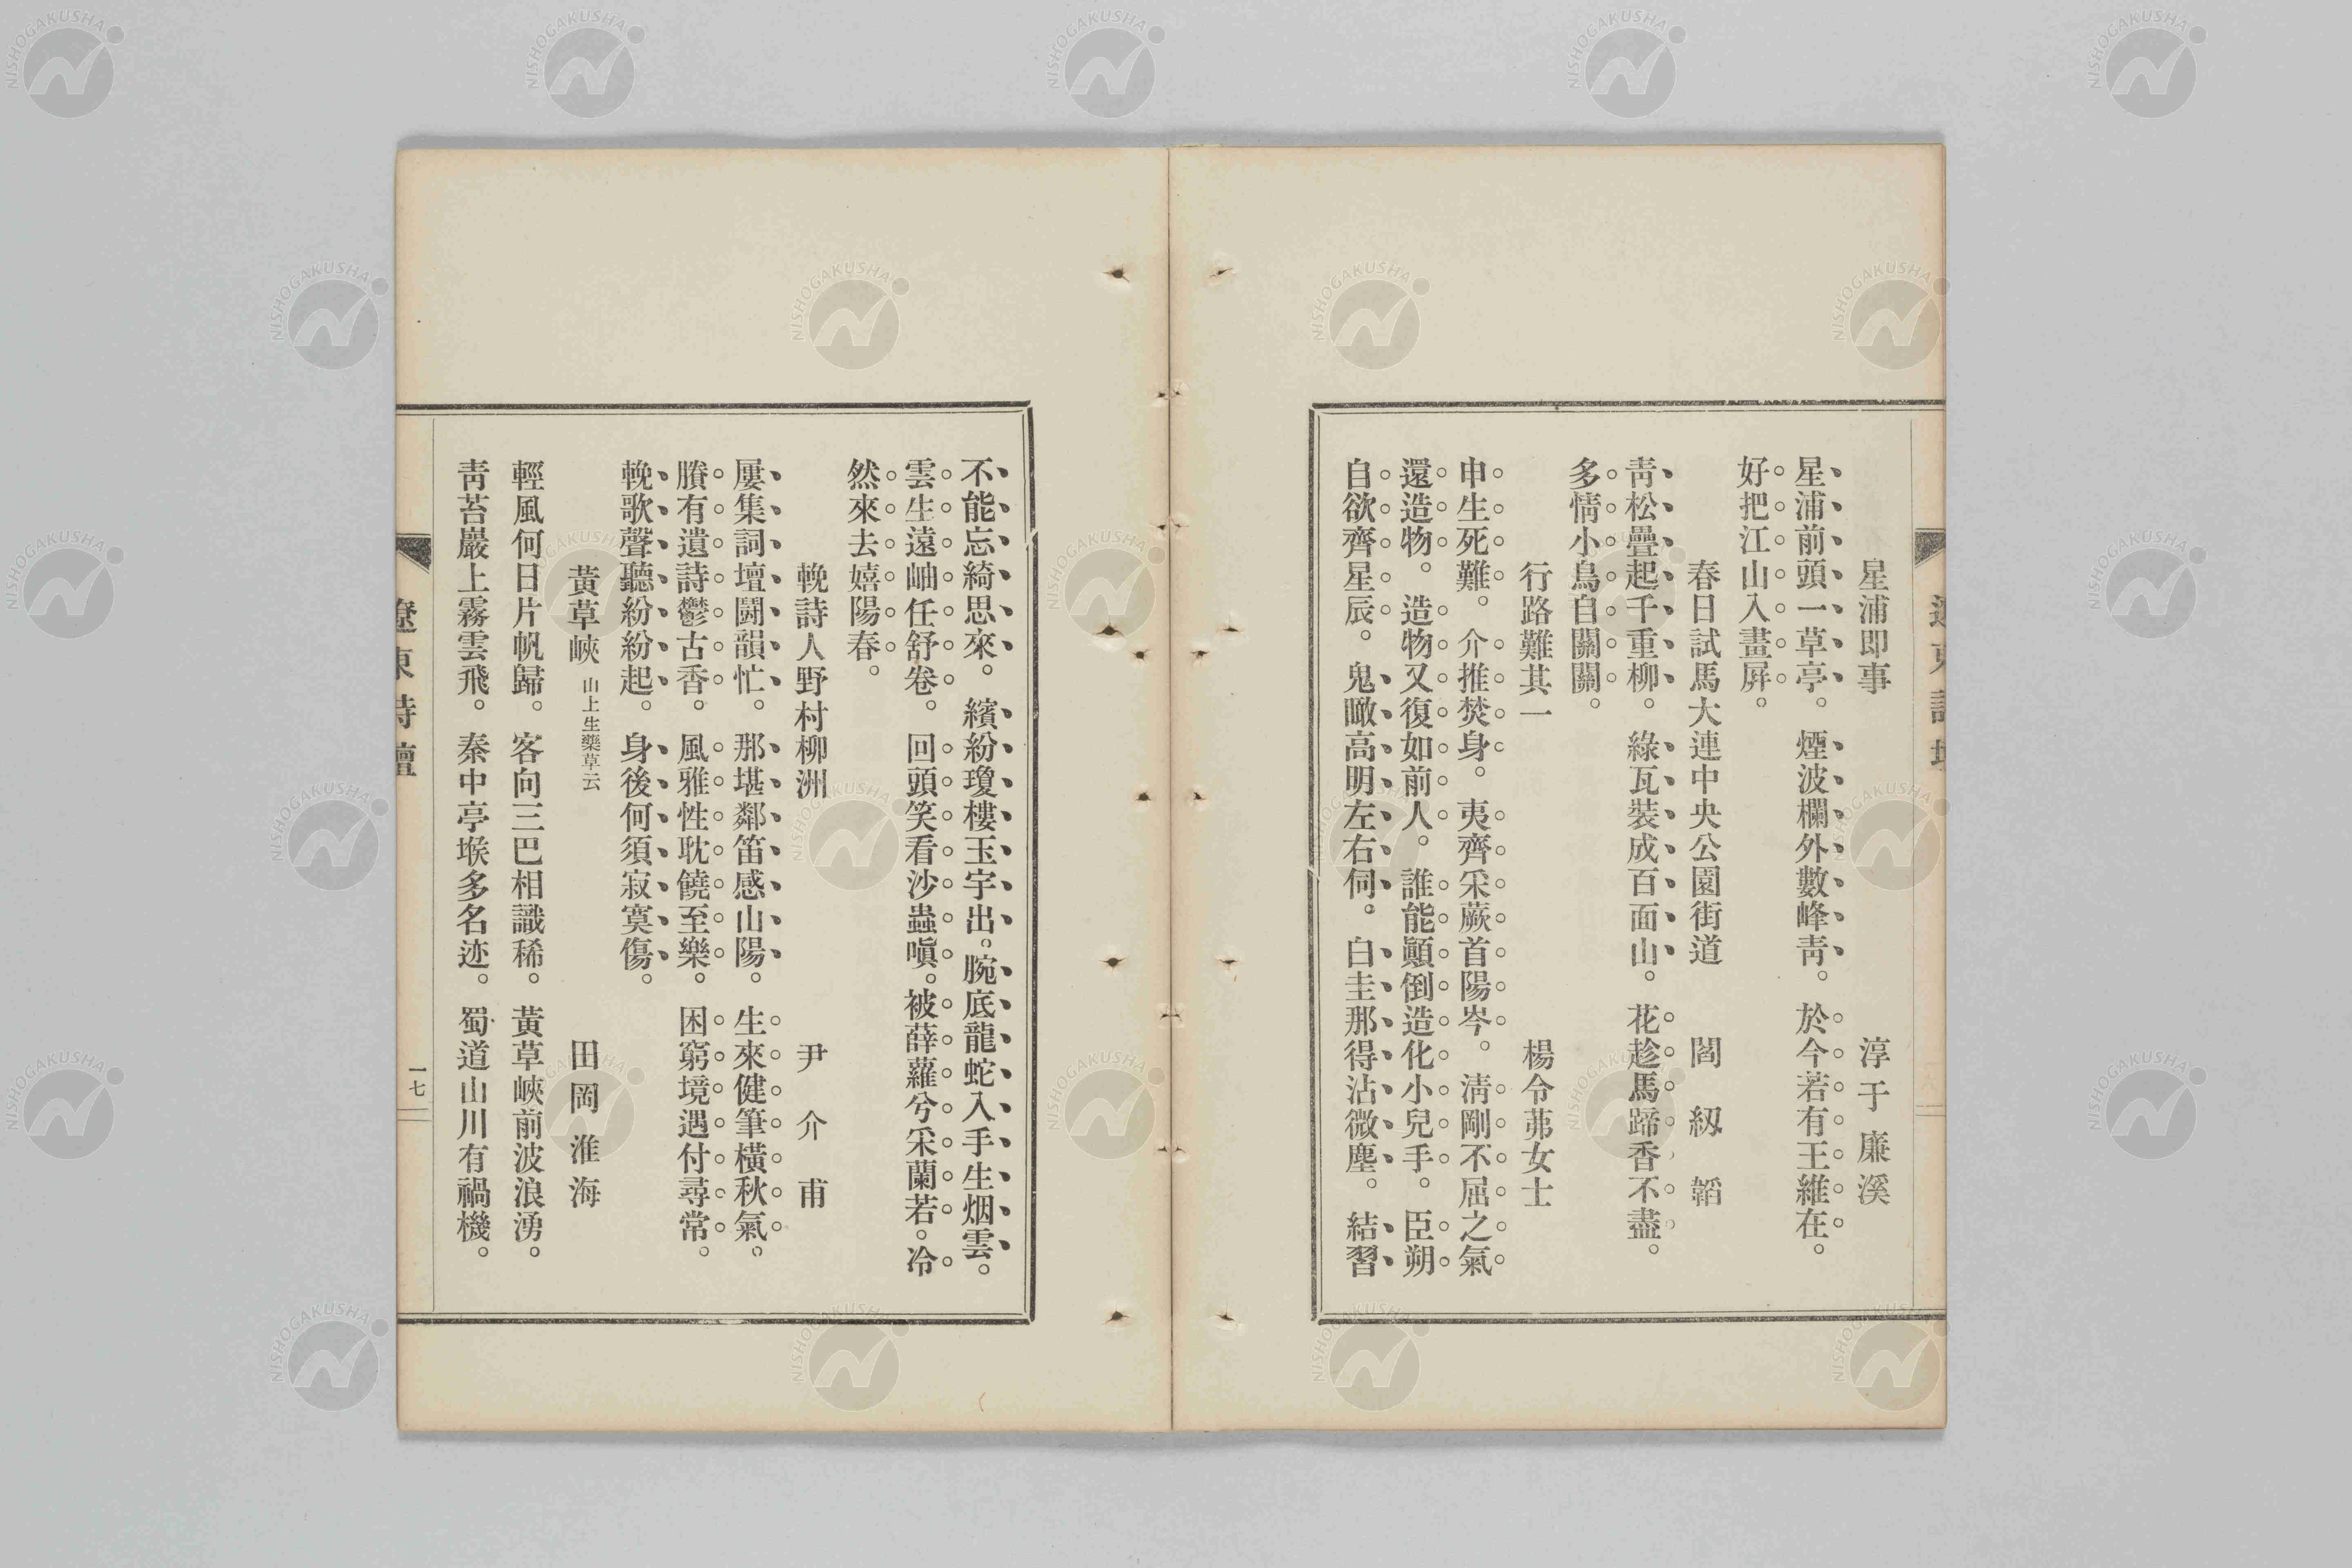 星浦即事　淳于廉溪
星浦前頭一草亭。煙波欄外數峰靑。於今若有王維在。
好把江山入畫屛。
春日試馬大連中央公園街道　閻紉韜
靑松疊起千重柳。綠瓦裝成百面山。花趁馬蹄香不盡。
多情小鳥自關關。
行路難其一　楊令茀女士
申生死難。介推焚身。夷齊采蕨首陽岑。淸剛不屈之氣
還造物。造物又復如前人。誰能顚倒造化小兒手。臣朔
自欲齊星辰。鬼瞰高明左右伺。白圭那得沾微塵。結習
不能忘綺思來。繽紛瓊樓玉宇出。腕底龍蛇入手生烟雲。
雲生遠岫任舒卷。回頭笑看沙蟲嗔。被薜蘿兮采蘭若。冷
然來去嬉陽春。
輓詩人野村柳洲　尹介甫
屢集詞壇鬪韻忙。那堪鄰笛感山陽。生來健筆橫秋氣。
賸有遺詩鬱古香。風雅性耽饒至樂。困窮境遇付尋常。
輓歌聲聽紛紛起。身後何須寂寞傷。
黃草峽　山上生藥草云　田岡淮海
輕風何日片帆歸。客向三巴相識稀。黃草峽前波浪湧。
靑苔巖上霧雲飛。秦中亭堠多名迹。蜀道山川有禍機。
遼東詩壇　一七
NISHOGAKUSHA